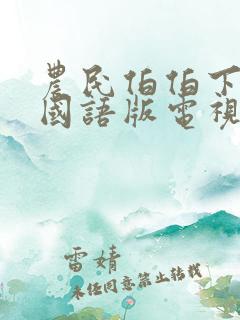 農民伯伯下
國語版電視
雷婧
未经同意禁止转载